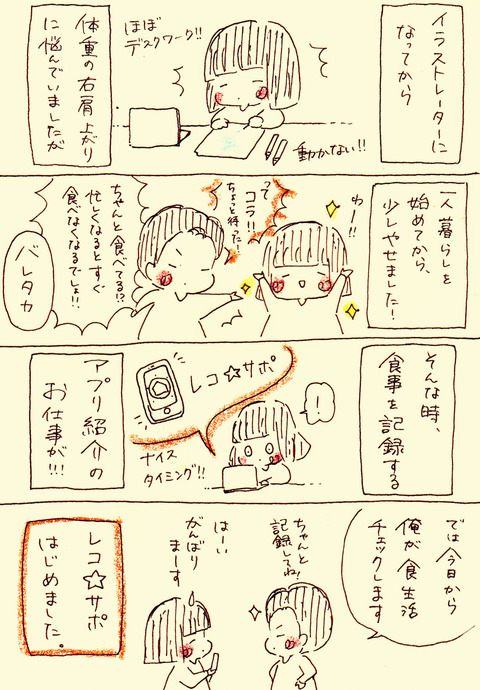 イラストレーターに
なってから
ほぼ
デスクワーク!!
動かない!!
体重の右肩上がり
に悩んでいましたが
一人暮らしを
始めてから、
少しやせました!
わーい
って
コラ!!
ちょっと待った!
ちゃんと食べてる!?
忙しくなるとすぐ
食べなくなるでしょ!!
バレタカ
そんな時、
食事を記録する
!
レコ☆サポ
ナイス
タイミング!!
アプリ紹介の
お仕事が!!!
では今日から
俺が食生活
チェックします
ちゃんと
記録してね!
はーい
がんばり
まーす
レコ☆サポ
はじめました。